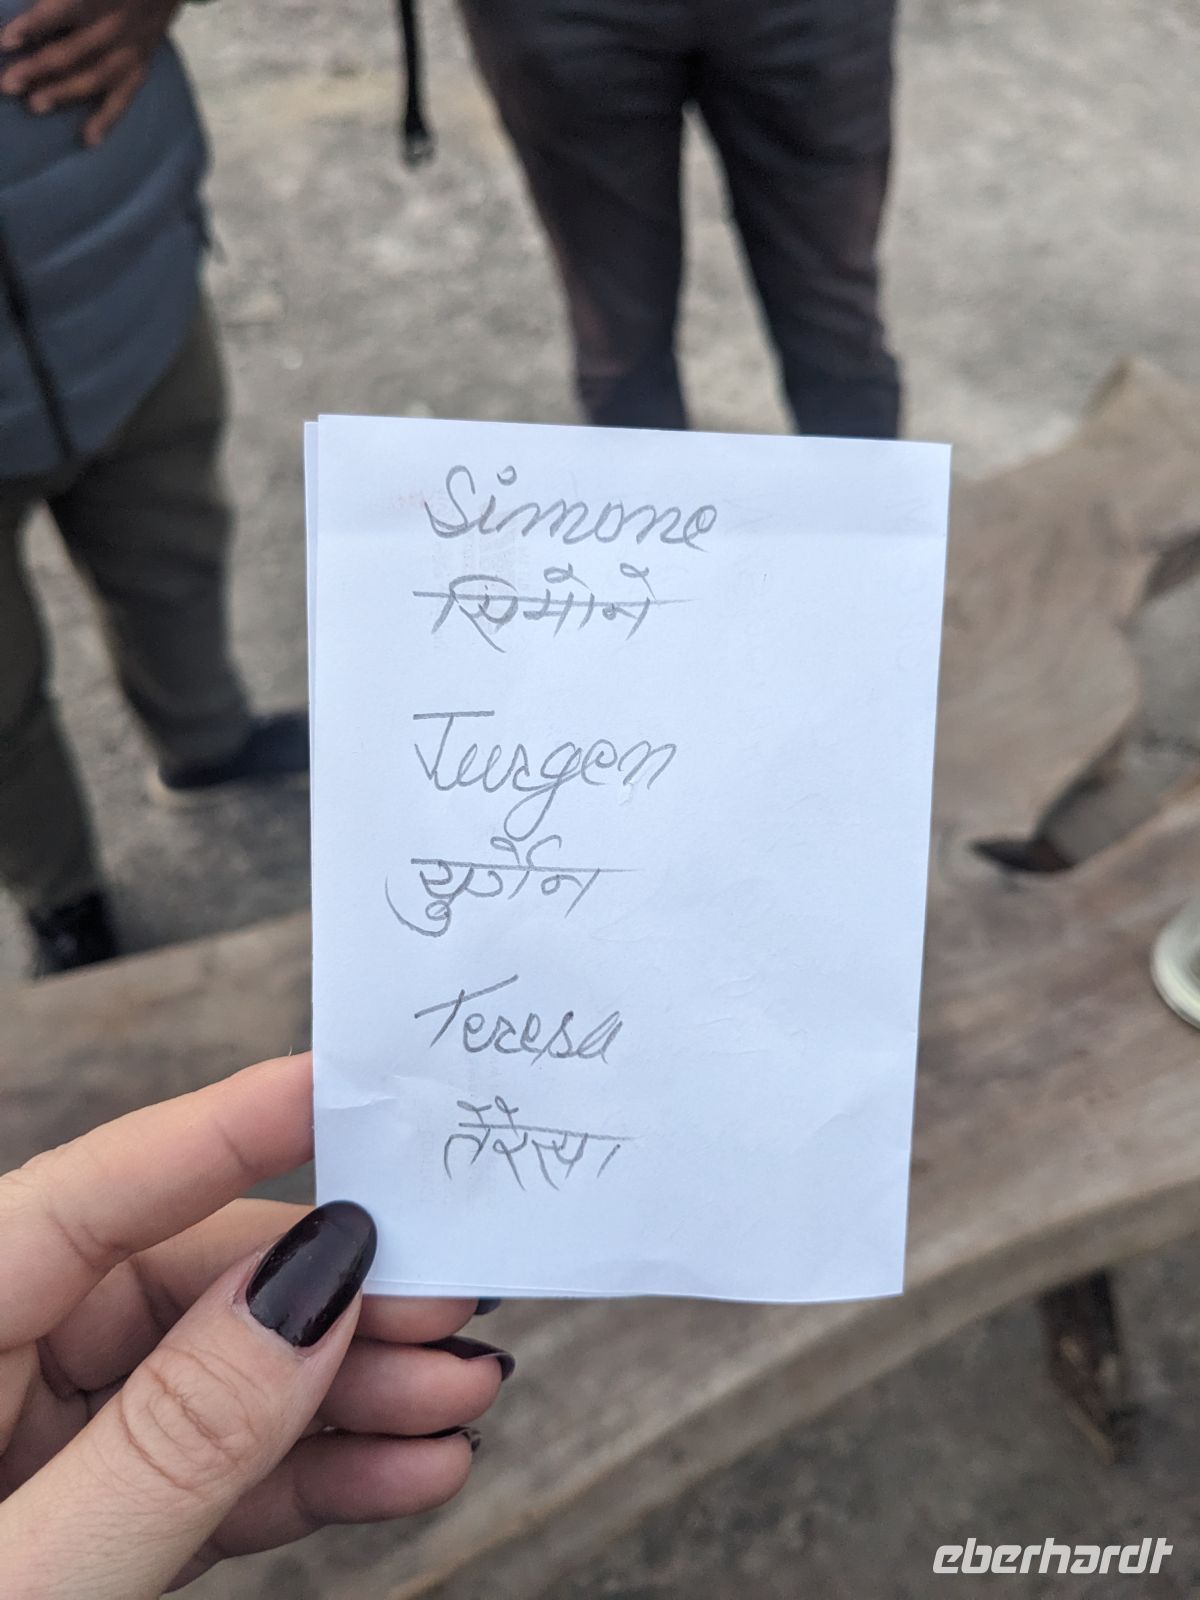 Simone
सिमोने
Jurgen
युर्गेन
Teresa
तेरेसा
eberhardt